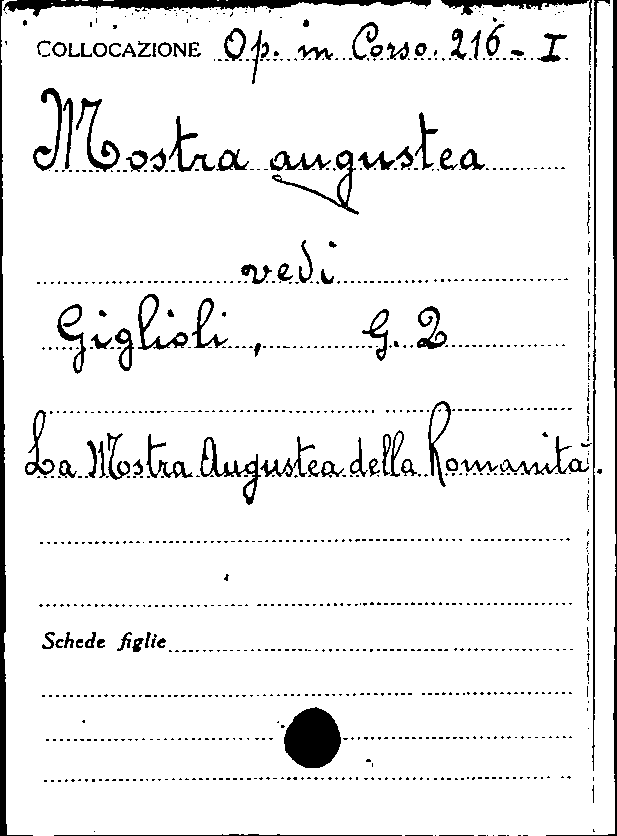 COLLOCAZIONE Op. in Corso. 216 - I
Mostra augustea
vedi
Giglioli, G. Q
La Mostra Augustea della Romanità.
Schede figlie